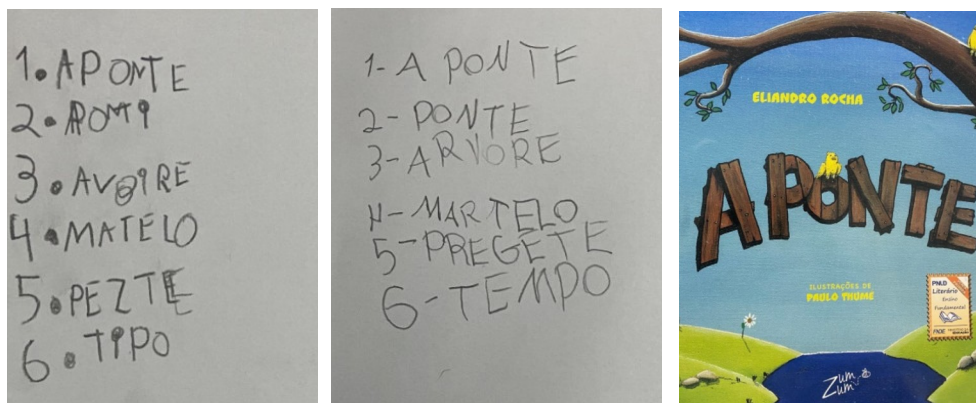 1. APONTE
2. POMI
3. AVOIRE
4. MATELO
5. PEZTE
6. TIPO
1- A PONTE
2- PONTE
3- ARVORE
4- MARTELO
5- PREGETE
6- TEMPO
ELIANDRO ROCHA
A PONTE
ILUSTRAÇÕES DE
PAULO THUME
PNLD
Literário
Ensino
Fundamental
FNDE
Zum
Zum